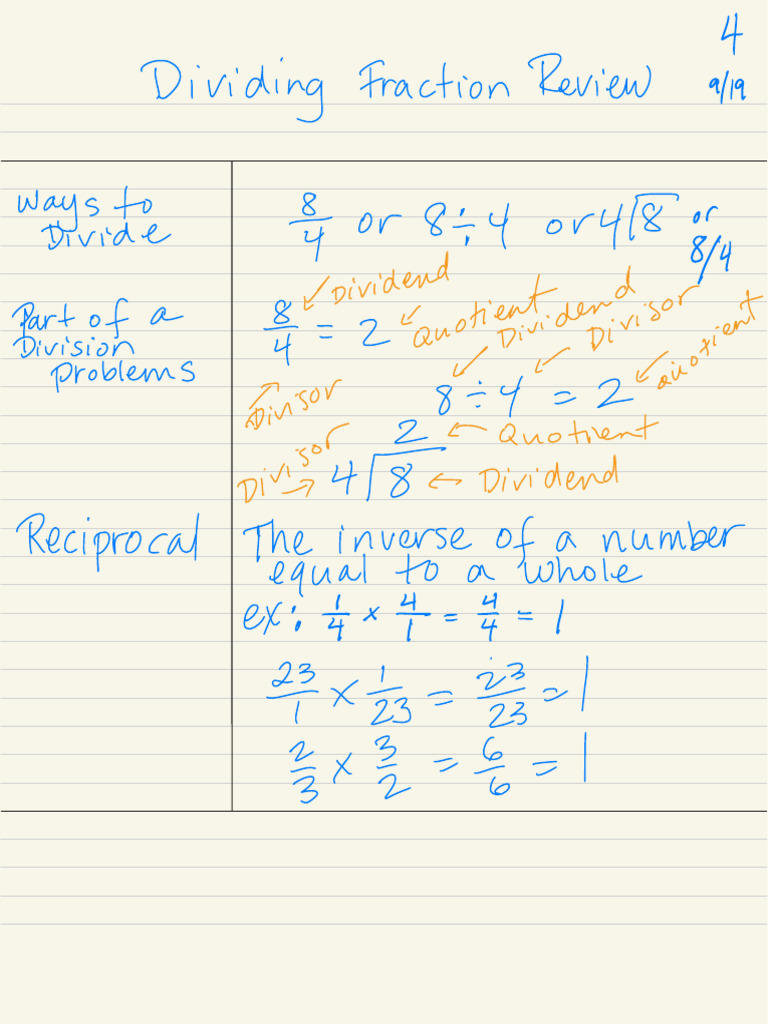 4
Dividing Fraction Review 9/19
Ways to
Divide
8/4 or 8÷4 or 4⟌8 or
8/4
Part of a
Division
problems
8/4 = 2
Dividend
Quotient
Divisor
8 ÷ 4 = 2
Dividend
Divisor
Quotient
2 ← Quotient
Divisor → 4⟌8 ← Dividend
Reciprocal
The inverse of a number
equal to a whole
ex: 1/4 × 4/1 = 4/4 = 1
23/1 × 1/23 = 23/23 = 1
2/3 × 3/2 = 6/6 = 1